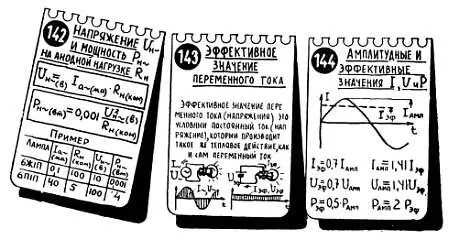 142
НАПРЯЖЕНИЕ Uн~
И МОЩНОСТЬ Рн~
НА АНОДНОЙ НАГРУЗКЕ Rн
Uн~(в) = Ia~(ma) · Rн(ком)
Рн~(вт) = 0,001 U²н~(в) / Rн(ком)
ПРИМЕР
ЛАМПА Ia~(ma) Rн(ком) Uн~(в) Рн~(вт)
6Ж1П 0,1 100 10 0,001
6П1П 40 5 100 4
143
ЭФФЕКТИВНОЕ
ЗНАЧЕНИЕ
ПЕРЕМЕННОГО ТОКА
ЭФФЕКТИВНОЕ ЗНАЧЕНИЕ ПЕРЕ
МЕННОГО ТОКА (НАПРЯЖЕНИЯ) ЭТО
УСЛОВНЫЙ ПОСТОЯННЫЙ ТОК (НАП
РЯЖЕНИЕ), КОТОРЫЙ ПРОИЗВОДИТ
ТАКОЕ ЖЕ ТЕПЛОВОЕ ДЕЙСТВИЕ, КАК
И САМ ПЕРЕМЕННЫЙ ТОК
144
АМПЛИТУДНЫЕ И
ЭФФЕКТИВНЫЕ
ЗНАЧЕНИЯ I, U и P
I
Iэф Iамп
t
Iэф=0,7 Iамп Iамп=1,41 Iэф
Uэф=0,7 Uамп Uамп=1,41 Uэф
Pэф=0,5·Pамп Pамп=2·Pэф